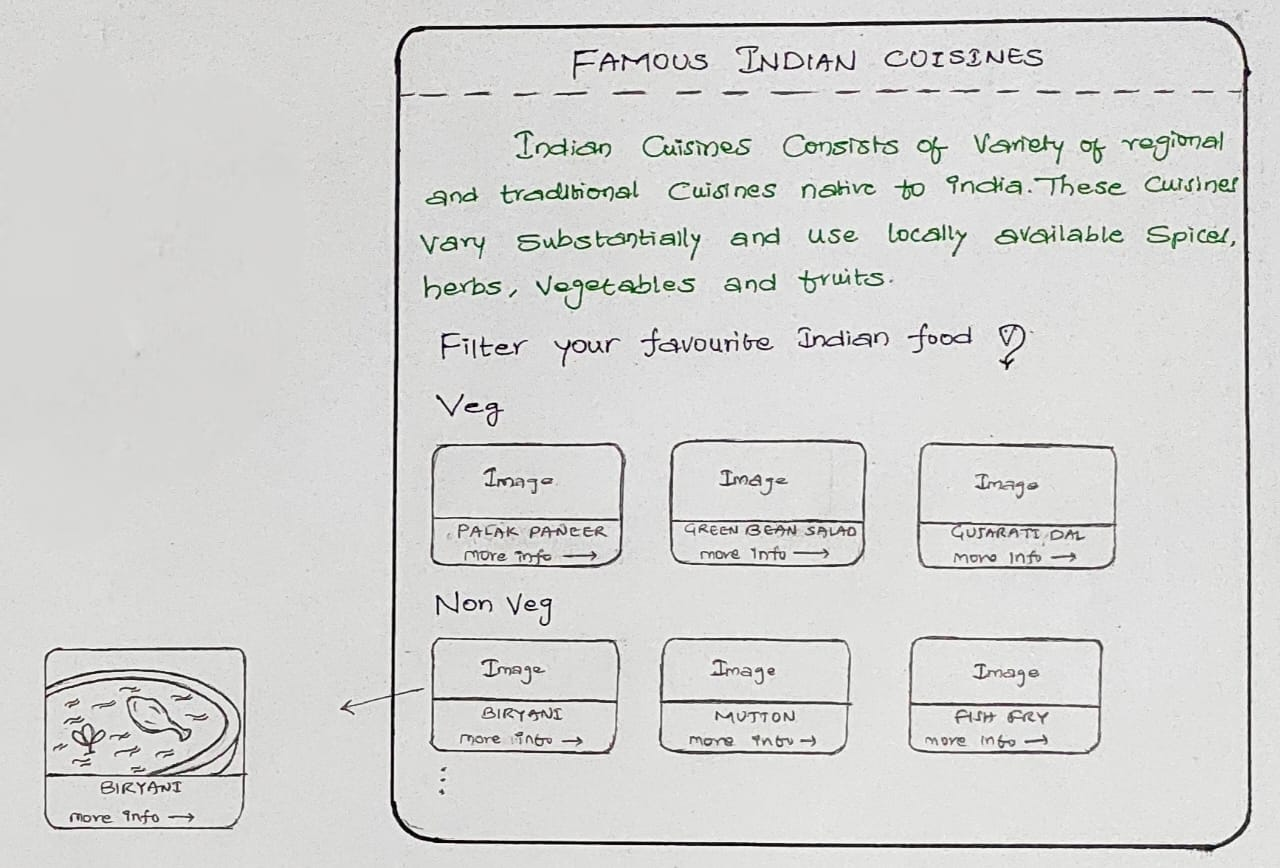 FAMOUS INDIAN CUISINES
Indian Cuisines Consists of Variety of regional
and traditional Cuisines native to india. These Cuisines
vary Substantially and use locally available Spices,
herbs, Vegetables and fruits.
Filter your favourite Indian food
Veg
Image Image Image
PALAK PANEER GREEN BEAN SALAD GUJARATI DAL
more info → more info → more info →
Non Veg
Image Image Image
BIRYANI MUTTON FISH FRY
more info → more info → more info →
BIRYANI
more info →